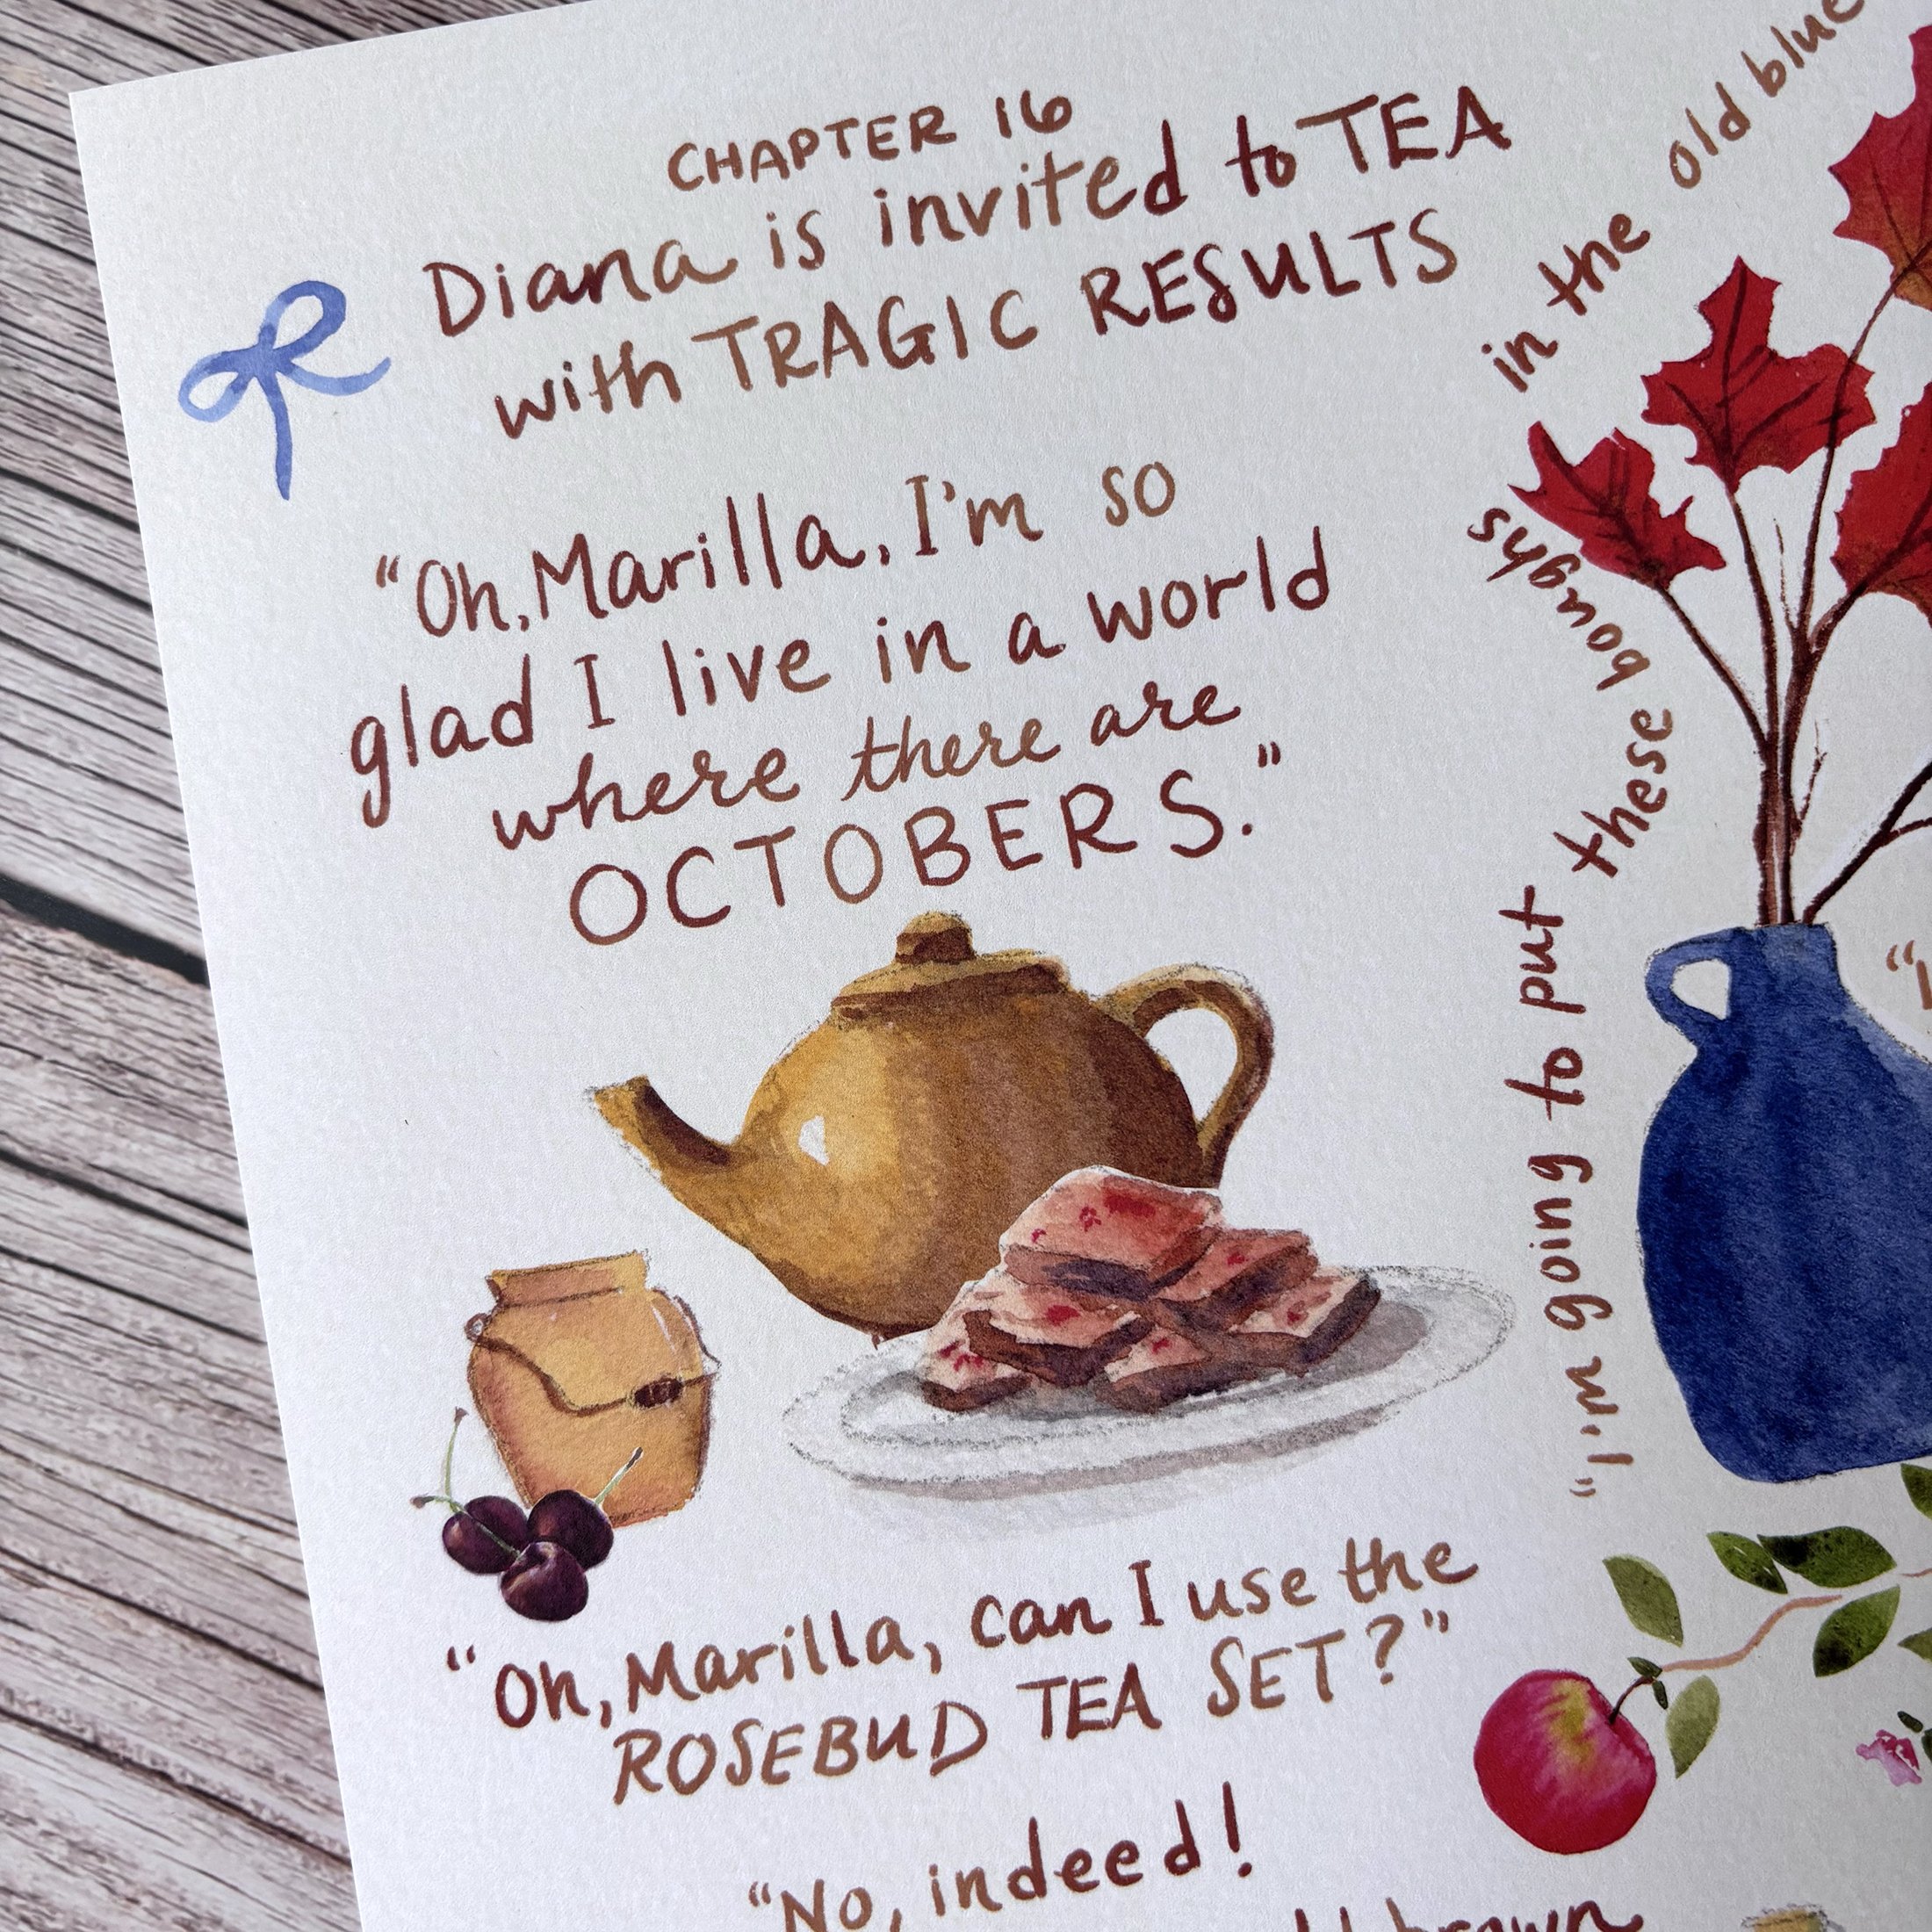 CHAPTER 16
Diana is invited to TEA
with TRAGIC RESULTS
"Oh, Marilla, I'm so
glad I live in a world
where there are
OCTOBERS."
"I'm going to put these boughs in the old blue
"Oh, Marilla, can I use the
ROSEBUD TEA SET?"
"No, indeed!
brown